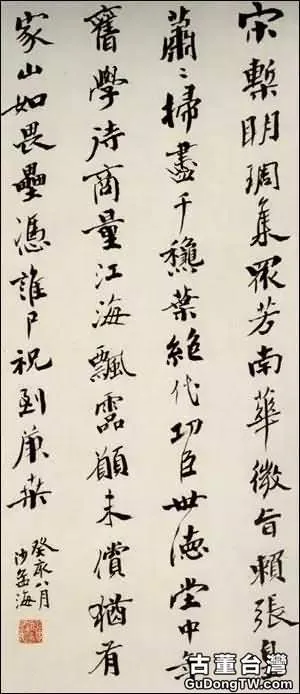 宋槧明琱集眾芳南華微旨賴張皇
蕭〻掃盡千穐葉絶代功臣世德堂中年
舊學待商量江海飄零願未償猶有
家山如畏壘憑誰尸祝到庚桑
癸亥八月
沙孟海
古董台灣
GuDongTW.com